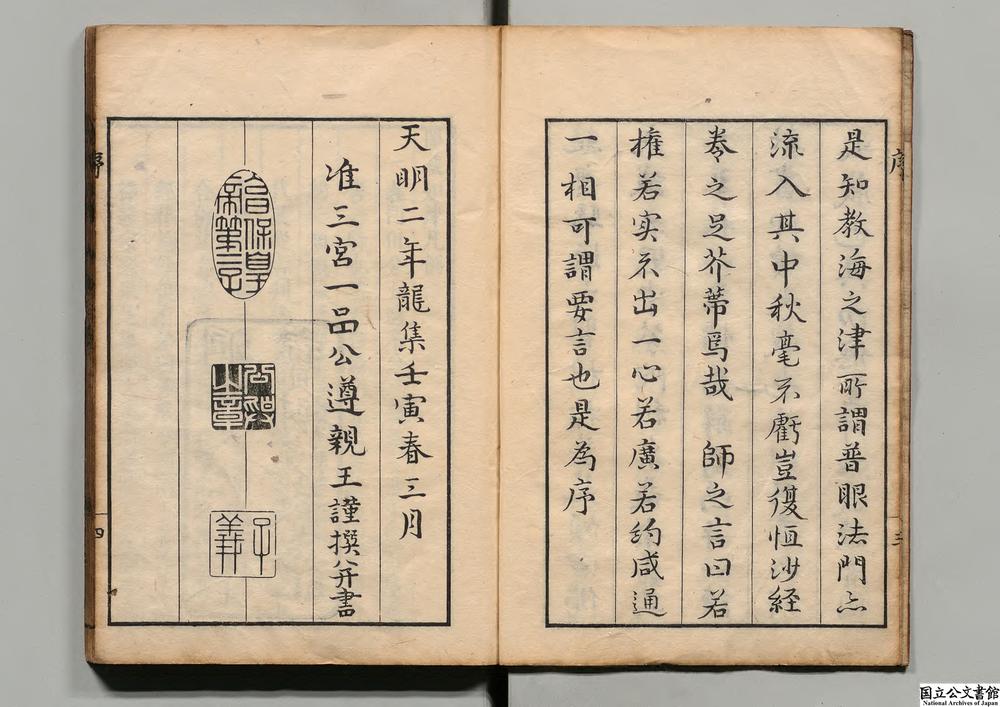 序
是知教海之津所謂普眼法門亦
流入其中秋毫不虧豈復恒沙経
巻之足芥蔕焉哉　師之言曰若
権若実不出一心若廣若約咸通
一相可謂要言也是為序
三
天明二年龍集壬寅春三月
准三宮一品公遵親王謹撰并書
序
四
国立公文書館
National Archives of Japan